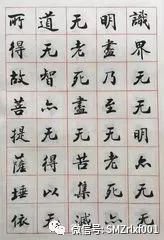 識界无无明亦无无
明盡乃至无老死亦
无老死盡无苦集滅
道无智亦无得以无
所得故菩提薩埵依
微信号: SMZrlxf001